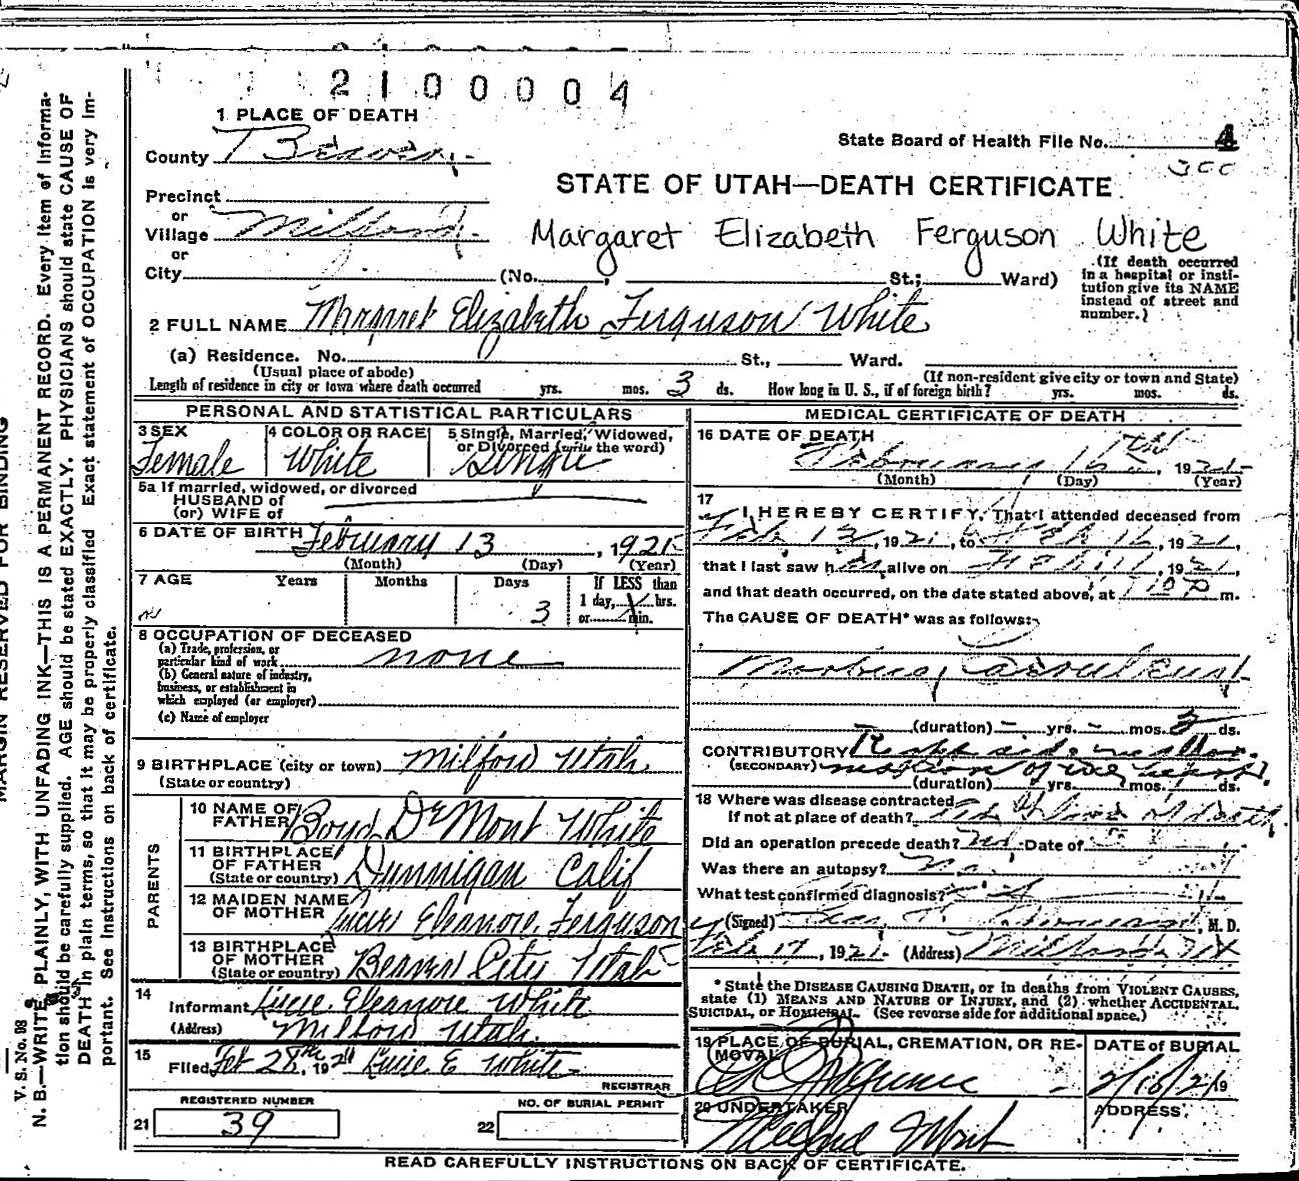 2100004
1 PLACE OF DEATH
County Beaver
State Board of Health File No. 4
Precinct
or
Village Milford
or
City (No. St.; Ward)
STATE OF UTAH—DEATH CERTIFICATE
Margaret Elizabeth Ferguson White
(If death occurred in a hospital or institution give its NAME instead of street and number.)
2 FULL NAME Margaret Elizabeth Ferguson White
(a) Residence. No. St., Ward.
(Usual place of abode) (If non-resident give city or town and State)
Length of residence in city or town where death occurred yrs. mos. 3 ds. How long in U. S., if of foreign birth? yrs. mos. ds.
PERSONAL AND STATISTICAL PARTICULARS
3 SEX Female
4 COLOR OR RACE White
5 Single, Married, Widowed, or Divorced (write the word) Single
5a If married, widowed, or divorced
HUSBAND of
(or) WIFE of
6 DATE OF BIRTH February 13, 1921
(Month) (Day) (Year)
7 AGE Years Months Days 3 If LESS than 1 day, hrs. or min.
8 OCCUPATION OF DECEASED
(a) Trade, profession, or particular kind of work none
(b) General nature of industry, business, or establishment in which employed (or employer)
(c) Name of employer
9 BIRTHPLACE (city or town) Milford Utah
(State or country)
PARENTS
10 NAME OF FATHER Boyd De Mont White
11 BIRTHPLACE OF FATHER (State or country) Dunnigan Calif
12 MAIDEN NAME OF MOTHER Lucie Eleanore Ferguson
13 BIRTHPLACE OF MOTHER (State or country) Beaver City Utah
14 Informant Lucie Eleanore White
(Address) Milford Utah.
15 Filed Feb 28th, 1921 Lucie E White
REGISTRAR
REGISTERED NUMBER
21 39
NO. OF BURIAL PERMIT
22
MEDICAL CERTIFICATE OF DEATH
16 DATE OF DEATH
February 16th, 1921
(Month) (Day) (Year)
17 I HEREBY CERTIFY, That I attended deceased from
Feb 13, 1921, to Feb 16, 1921,
that I last saw her alive on Feb 16, 1921,
and that death occurred, on the date stated above, at m.
The CAUSE OF DEATH* was as follows:
Morbus Caeruleus
(duration) - yrs. - mos. 3 ds.
CONTRIBUTORY
(SECONDARY) of the heart.
(duration) yrs. mos. ds.
18 Where was disease contracted
If not at place of death? At place of death.
Did an operation precede death? No Date of
Was there an autopsy? No
What test confirmed diagnosis?
(Signed) , M. D.
Feb 17, 1921 (Address) Milford
* State the DISEASE CAUSING DEATH, or in deaths from VIOLENT CAUSES, state (1) MEANS AND NATURE OF INJURY, and (2) whether ACCIDENTAL, SUICIDAL, or HOMICIDAL. (See reverse side for additional space.)
19 PLACE OF BURIAL, CREMATION, OR REMOVAL
DATE of BURIAL
19
20 UNDERTAKER
ADDRESS
READ CAREFULLY INSTRUCTIONS ON BACK OF CERTIFICATE.
MARGIN RESERVED FOR BINDING
V. S. No. 98
N. B.—WRITE PLAINLY, WITH UNFADING INK—THIS IS A PERMANENT RECORD. Every item of information should be carefully supplied. AGE should be stated EXACTLY. PHYSICIANS should state CAUSE OF DEATH in plain terms, so that it may be properly classified. Exact statement of OCCUPATION is very important. See instructions on back of certificate.